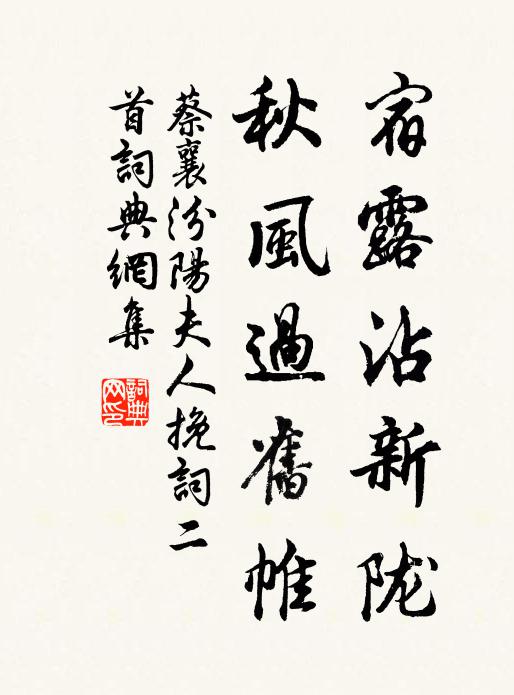 宿露沾新陇
秋風過舊帷
蔡襄汾陽夫人挽詞二
首詞典網集
詞典网印